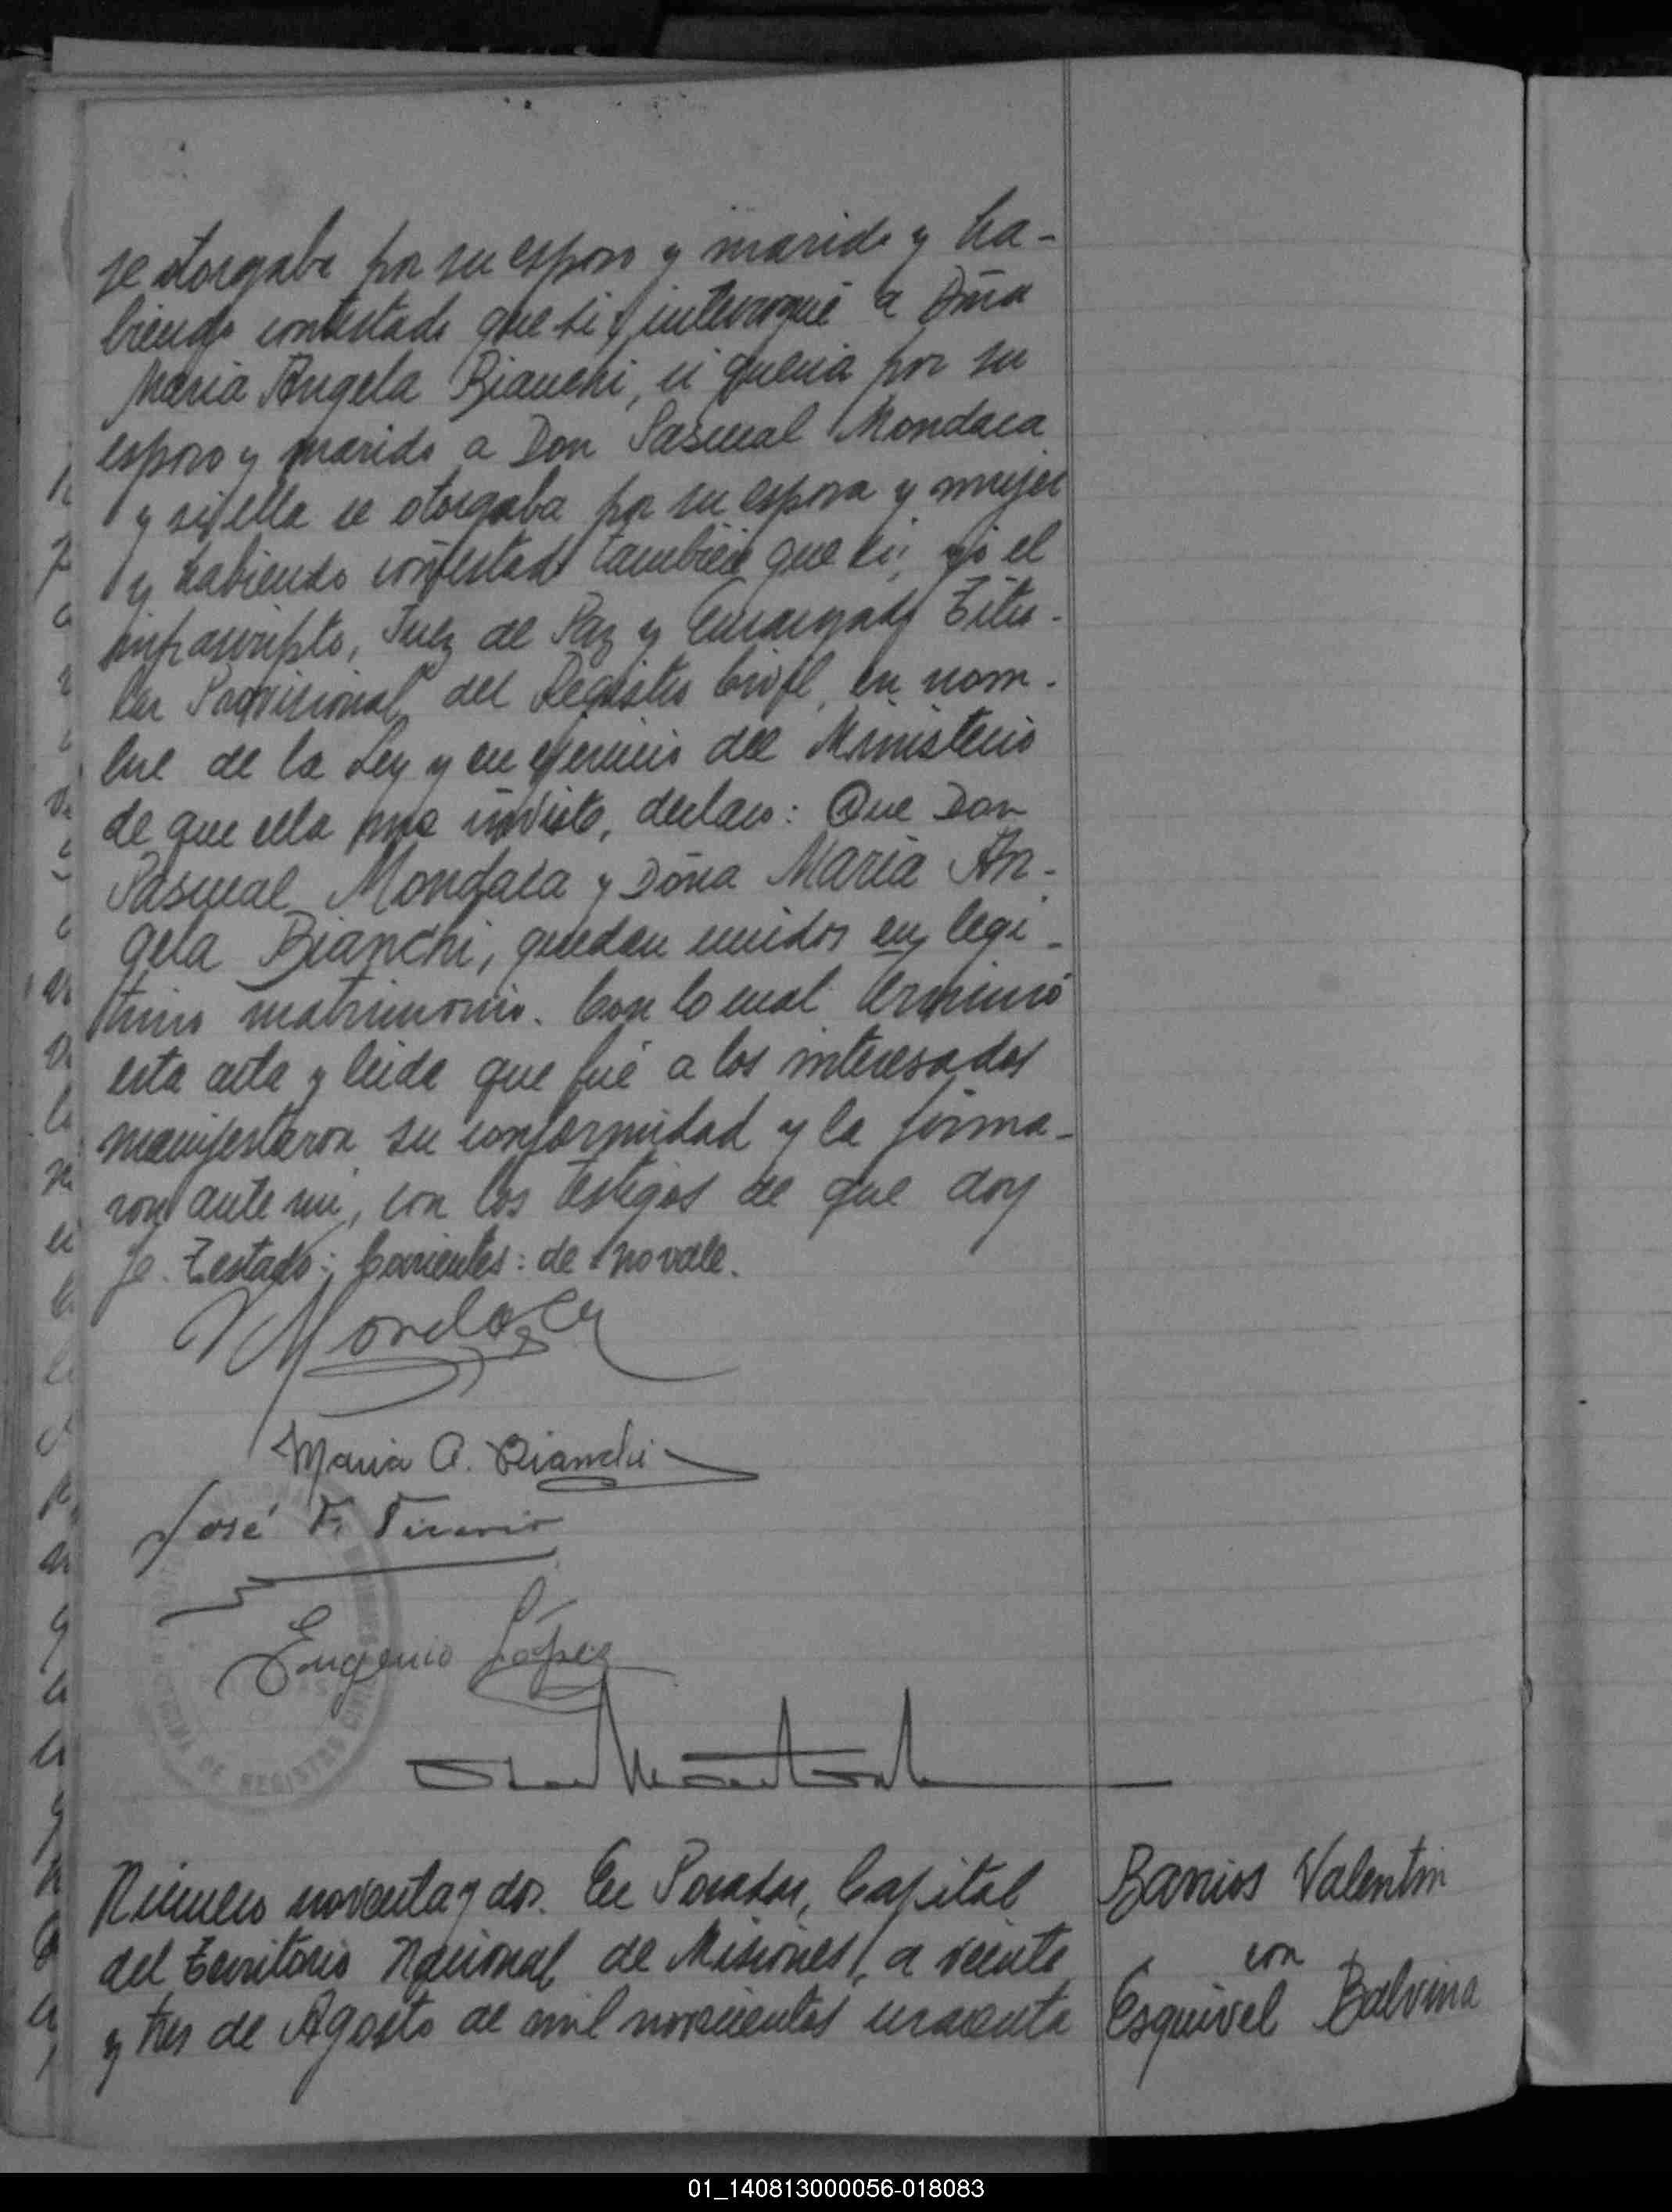 se otorgaba por su esposo y marido y ha-
biendo contestado que si, interrogué a Dña
María Angela Bianchi, si quería por su
esposo y marido a Don Pascual Mondaca
y si ella se otorgaba por su esposa y mujer
y habiendo contestado también que si, yo el
infrascripto, Juez de Paz y Encargado Titu-
lar Provisional del Registro Civil, en nom-
bre de la Ley y en ejercicio del Ministerio
de que ella me inviste, declaro: Que Don
Pascual Mondaca y Doña María An-
gela Bianchi, quedan unidos en legi-
timo matrimonio. Con lo cual terminó
esta acta y leida que fué a los interesados
manifestaron su conformidad y la firma-
ron ante mi, con los testigos de que doy
fe. Testado: Corrientes: de no vale.
Mondaca
Maria A. Bianchi
José F.
Eugenio López
OFICINA DE REGISTRO CIVIL
Número noventa y dos. En Posadas, Capital
del Territorio Nacional de Misiones, a veinte
y tres de Agosto de mil novecientos cuarenta
Barrios Valentin
con
Esquivel Balvina
01_140813000056-018083